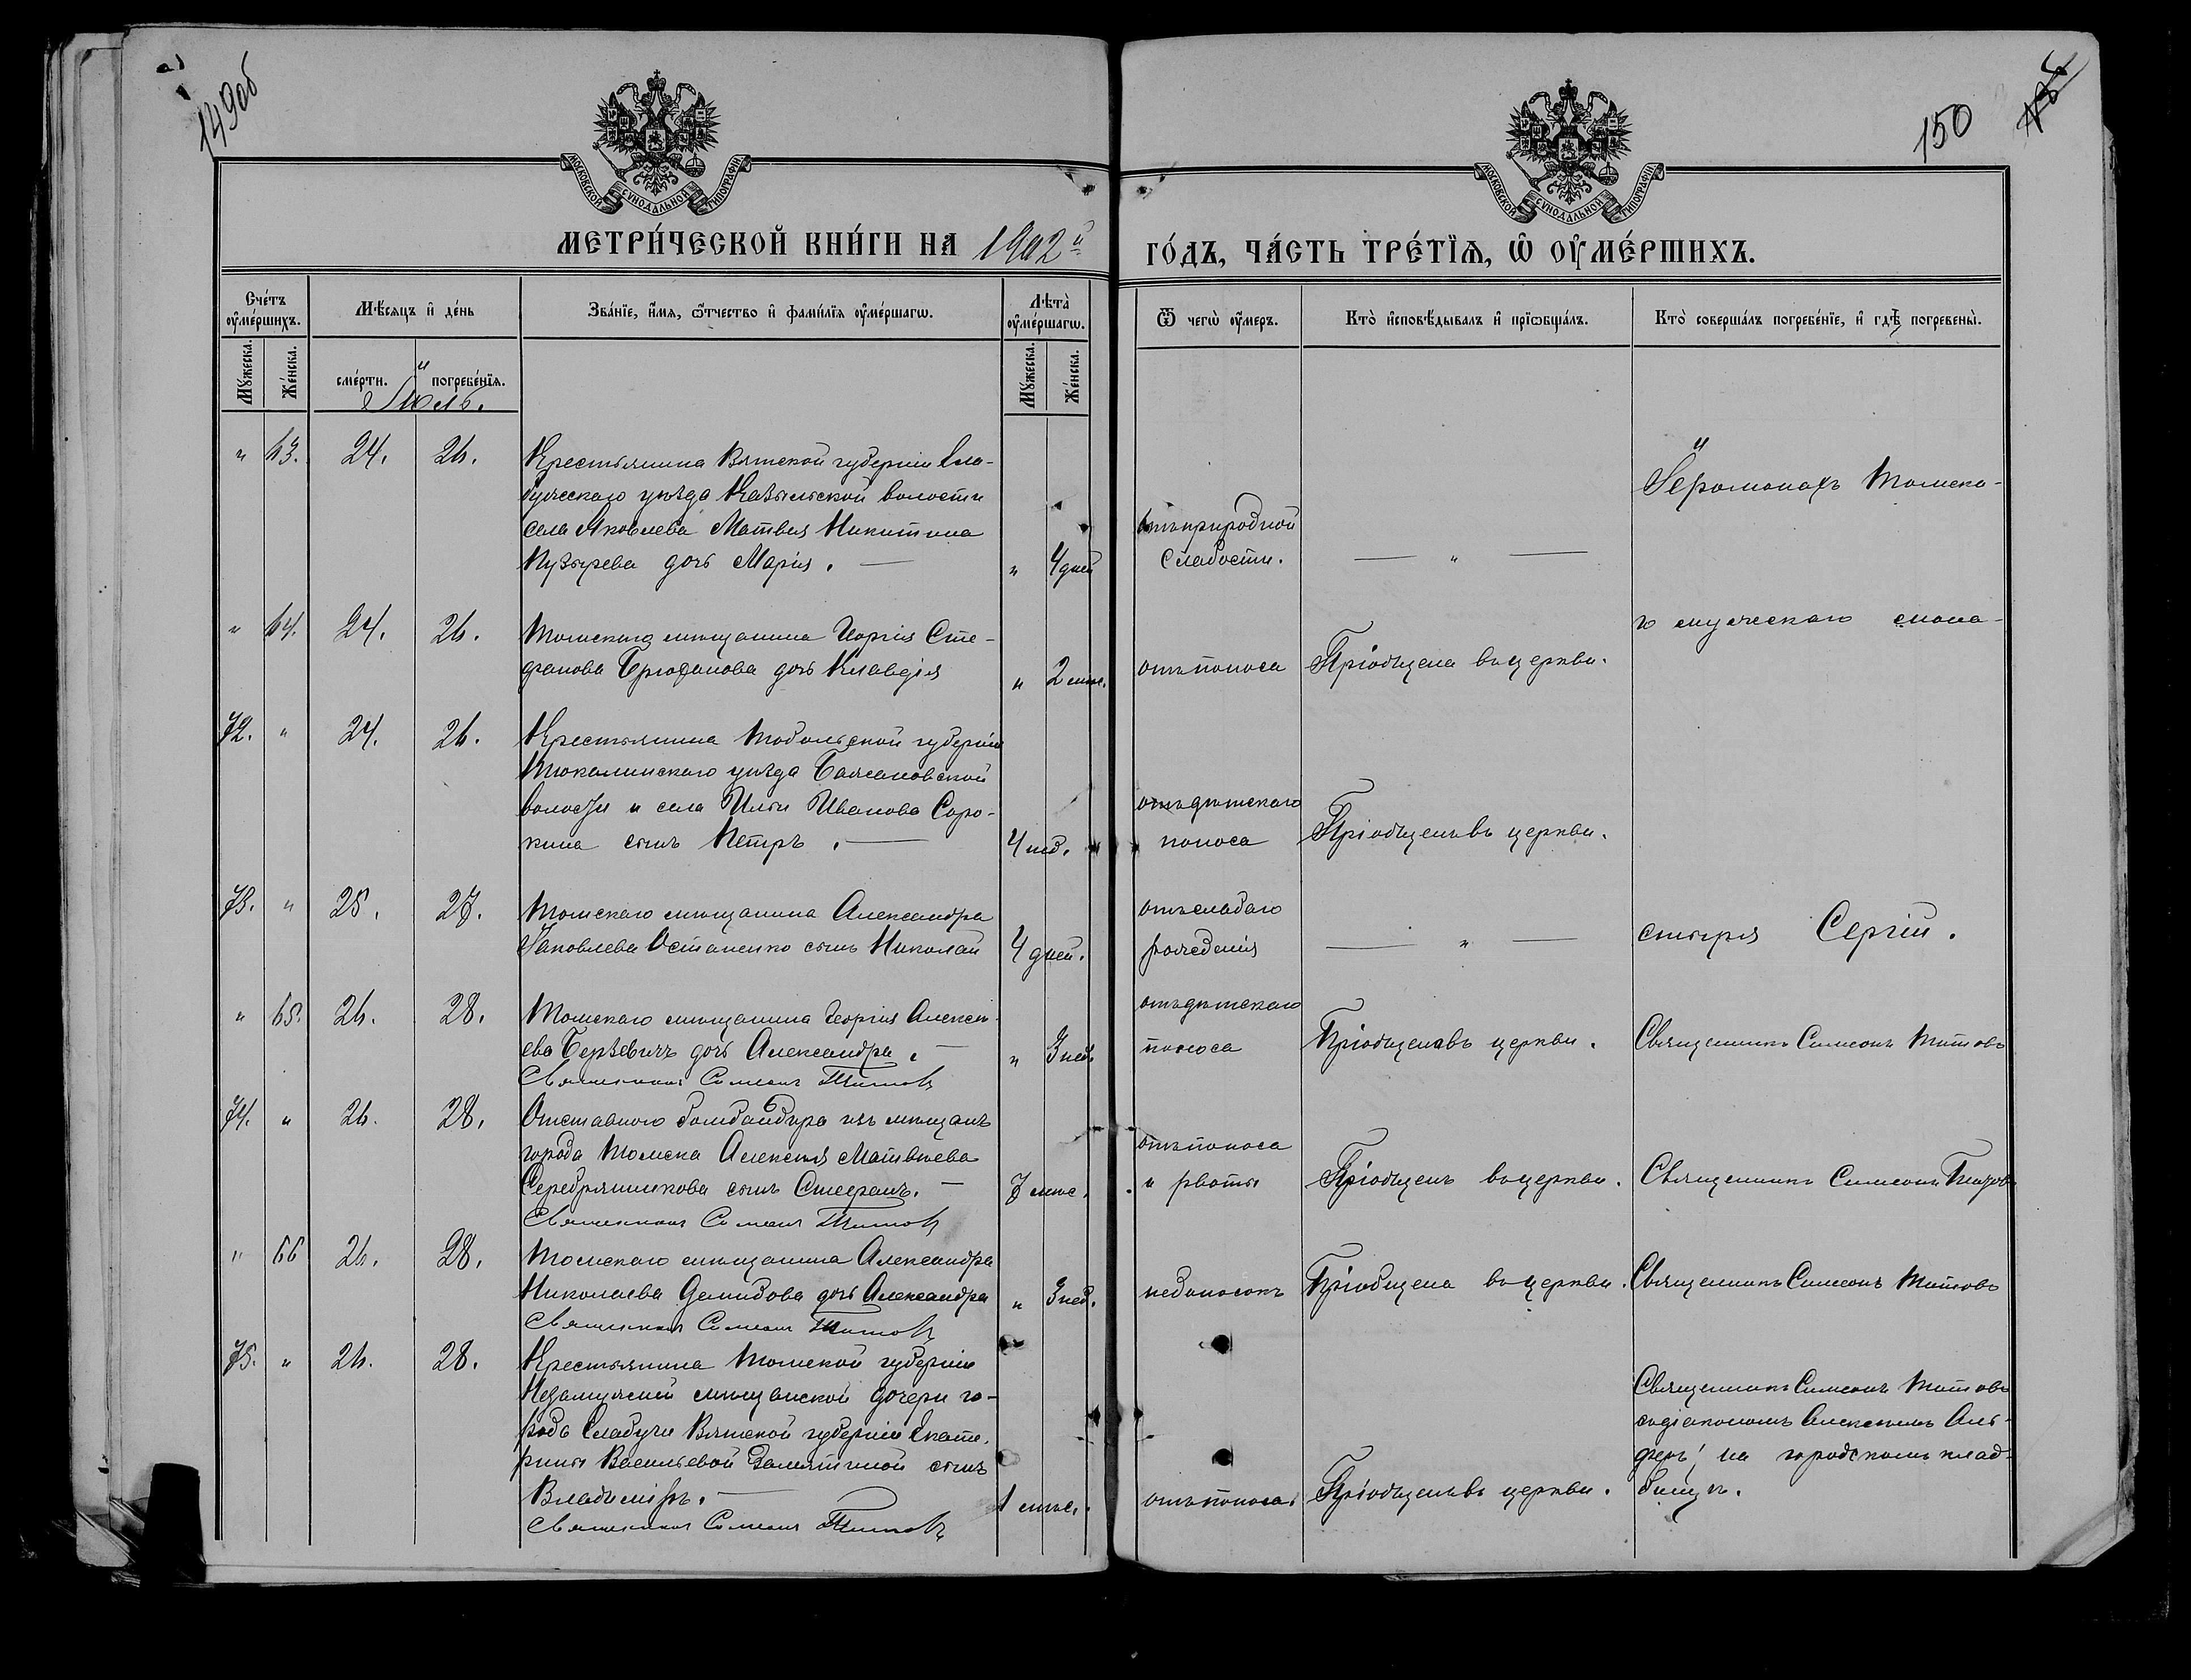 149об
150
МОСКОВСКОЙ СѴНОДАЛЬНОЙ ТИПОГРАФІИ
МОСКОВСКОЙ СѴНОДАЛЬНОЙ ТИПОГРАФІИ
МЕТРИ́ЧЕСКОЙ КНИ́ГИ НА 1902й
ГО́ДЪ, ЧА́СТЬ ТРЕ́ТЇѦ, Ѡ҆ ОУ҆МЕ́РШИХЪ.
Сче́тъ оу҆ме́ршихъ.
Мѣ́сяцъ и҆ де́нь
Зва́нїе, и҆́мѧ, ѻ҆́тчество и҆ фами́лїѧ оу҆ме́ршагѡ.
Лѣта̀ оу҆ме́ршагѡ.
Ѿ чегѡ̀ оу҆́меръ.
Кто̀ и҆сповѣ́дывалъ и҆ прїѡбща́лъ.
Кто̀ соверша́лъ погребе́нїе, и҆ гдѣ̀ погребены̀.
Мꙋ́жеска. Же́нска.
сме́рти. погребе́нїѧ.
Мꙋ́жеска. Же́нска.
Іюль.
" 63. 24. 26. Крестьянина Вятской губерніи Ела-
бужскаго уѣзда волости
села Яковлева Матвія Никитина
Пузырева дочь Марія. — " 4 дней
отъ природной
слабости.
— " —
Іеромонахъ Томска-
" 64. 24. 26. Томскаго мѣщанина Георгія Сте-
фанова дочь Клавдія " 2 мѣс.
отъ поноса Пріобщена въ церкви.
го мужескаго мона-
72. " 24. 26. Крестьянина Тобольской губерніи
Тюкалинскаго уѣзда
волости и села Ильи Иванова Соро-
кина сынъ Петръ. — 4 нед.
отъ дѣтскаго
поноса Пріобщенъ въ церкви.
73. " 25. 27. Томскаго мѣщанина Александра
Яковлева Остапенко сынъ Николай 4 дней.
отъ слабаго
рожденія — " —
стыря Сергій.
" 65. 26. 28. Томскаго мѣщанина Георгія Алексѣ-
ева дочь Александра. — " 3 нед.
Священникъ Симеонъ Титовъ
отъ дѣтскаго
поноса Пріобщена въ церкви. Священникъ Симеонъ Титовъ
74. " 26. 28. Отставного бомбандира изъ мѣщанъ
города Томска Алексія Матвѣева
Серебрянникова сынъ Стефанъ. — 7 мѣс.
Священникъ Симеонъ Титовъ
отъ поноса
и рвоты Пріобщенъ въ церкви. Священникъ Симеонъ Титовъ
" 66 26. 28. Томскаго мѣщанина Александра
Николаева Демидова дочь Александра " 3 нед.
Священникъ Симеонъ Титовъ
недоносокъ Пріобщена въ церкви. Священникъ Симеонъ Титовъ
75. " 26. 28. Крестьянина Томской губерніи
Незамужней мѣщанской дочери го-
рода Елабуги Вятской губерніи Екате-
рины Васильевой Замятиной сынъ
Владиміръ. — 1 мѣс.
Священникъ Симеонъ Титовъ
отъ поноса Пріобщенъ въ церкви.
Священникъ Симеонъ Титовъ
съ діакономъ Алексіемъ
на городскомъ клад-
бищѣ.